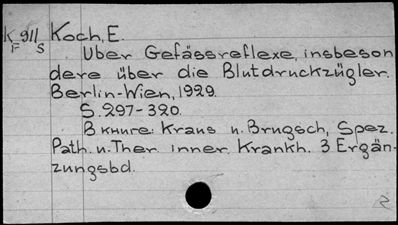 K 911 Koch, E.
F S
Über Gefässreflexe, insbeson
dere über die Blutdruckzügler.
Berlin-Wien, 1929.
S. 297-320.
В книге: Kraus u. Brugsch, Spez.
Path. u. Ther. inner. Krankh. 3 Ergän-
zungsbd.